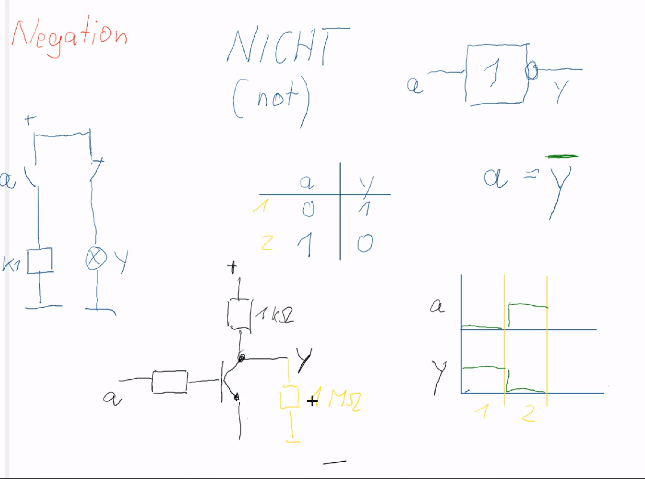 Negation
NICHT
(not)
1
a
y
+
a
K1
y
a y
1 0 1
2 1 0
a = y̅
+
1kΩ
y
a
1 MΩ
a
y
1 2